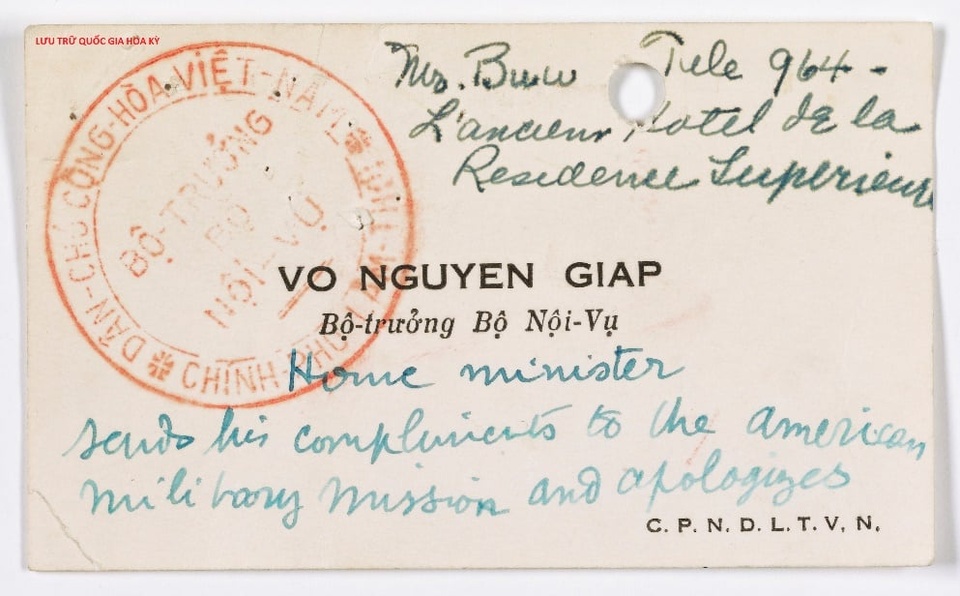 LƯU TRỮ QUỐC GIA HOA KỲ
DÂN-CHỦ CỘNG-HÒA VIỆT-NAM
CHÍNH-PHỦ LÂM-THỜI
BỘ-TRƯỞNG
BỘ
NỘI-VỤ
Mr. Buu Tele 964 -
L'ancien Hotel de la
Residence Superieure
VO NGUYEN GIAP
Bộ-trưởng Bộ Nội-Vụ
Home minister
sends his compliments to the American
military mission and apologizes
C. P. N. D. L. T. V. N.